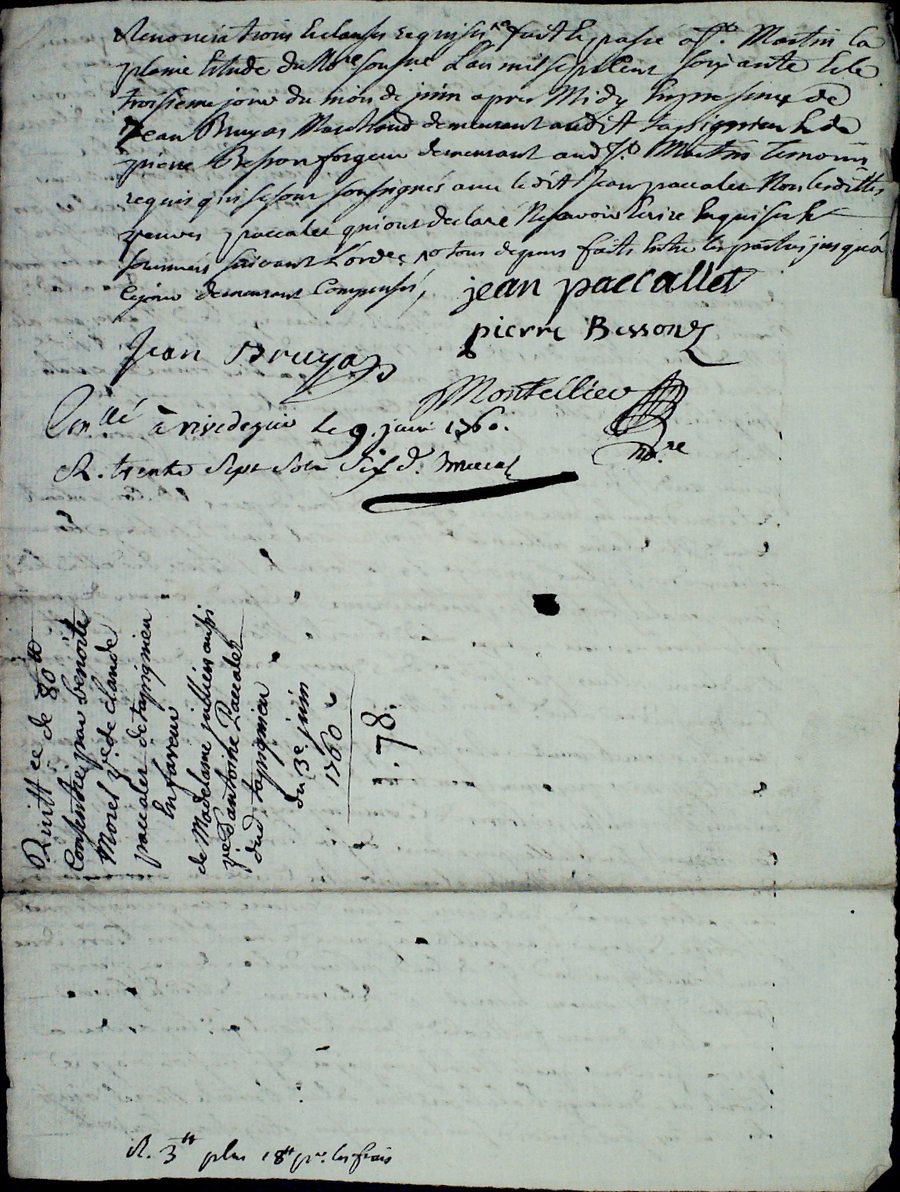 Renonciations & clauses requises fait & passé a St. Martin la
plaine Etude du Nore sousne. L'an mil sept cent soixante & le
troisieme jour du mois de juin apres Midy En presence de
Jean Bruyas Marchand demeurant audit tapigneu & de
pierre Besson forgeur demeurant aud St. Martin temoins
requis qui se sont soussignés avec ledit Jean paccalet Non lesdittes
veuves paccalet qui ont declaré Ne savoir Ecrire Enquises &
sommées suivant L'ordce. tous depens faits Entre les parties jusqu'a
ce jour demeurant Compensés,
jean paccallet
pierre Besson
Jean Bruyas
Montellier
nore
Conllé à rivedegier le 9. juin 1760.
R. trente sept sols six d.
Quittce de 80tt
Consentie par benoite
Morel ve. de claude
paccalet de tapigneu
En faveur
de Madelaine jullien aussi
ve. d'antoine Paccalet
dud. tapigneu
du 3e juin
1760
1.78.
R. 3tt plus 18tt pr. les frais